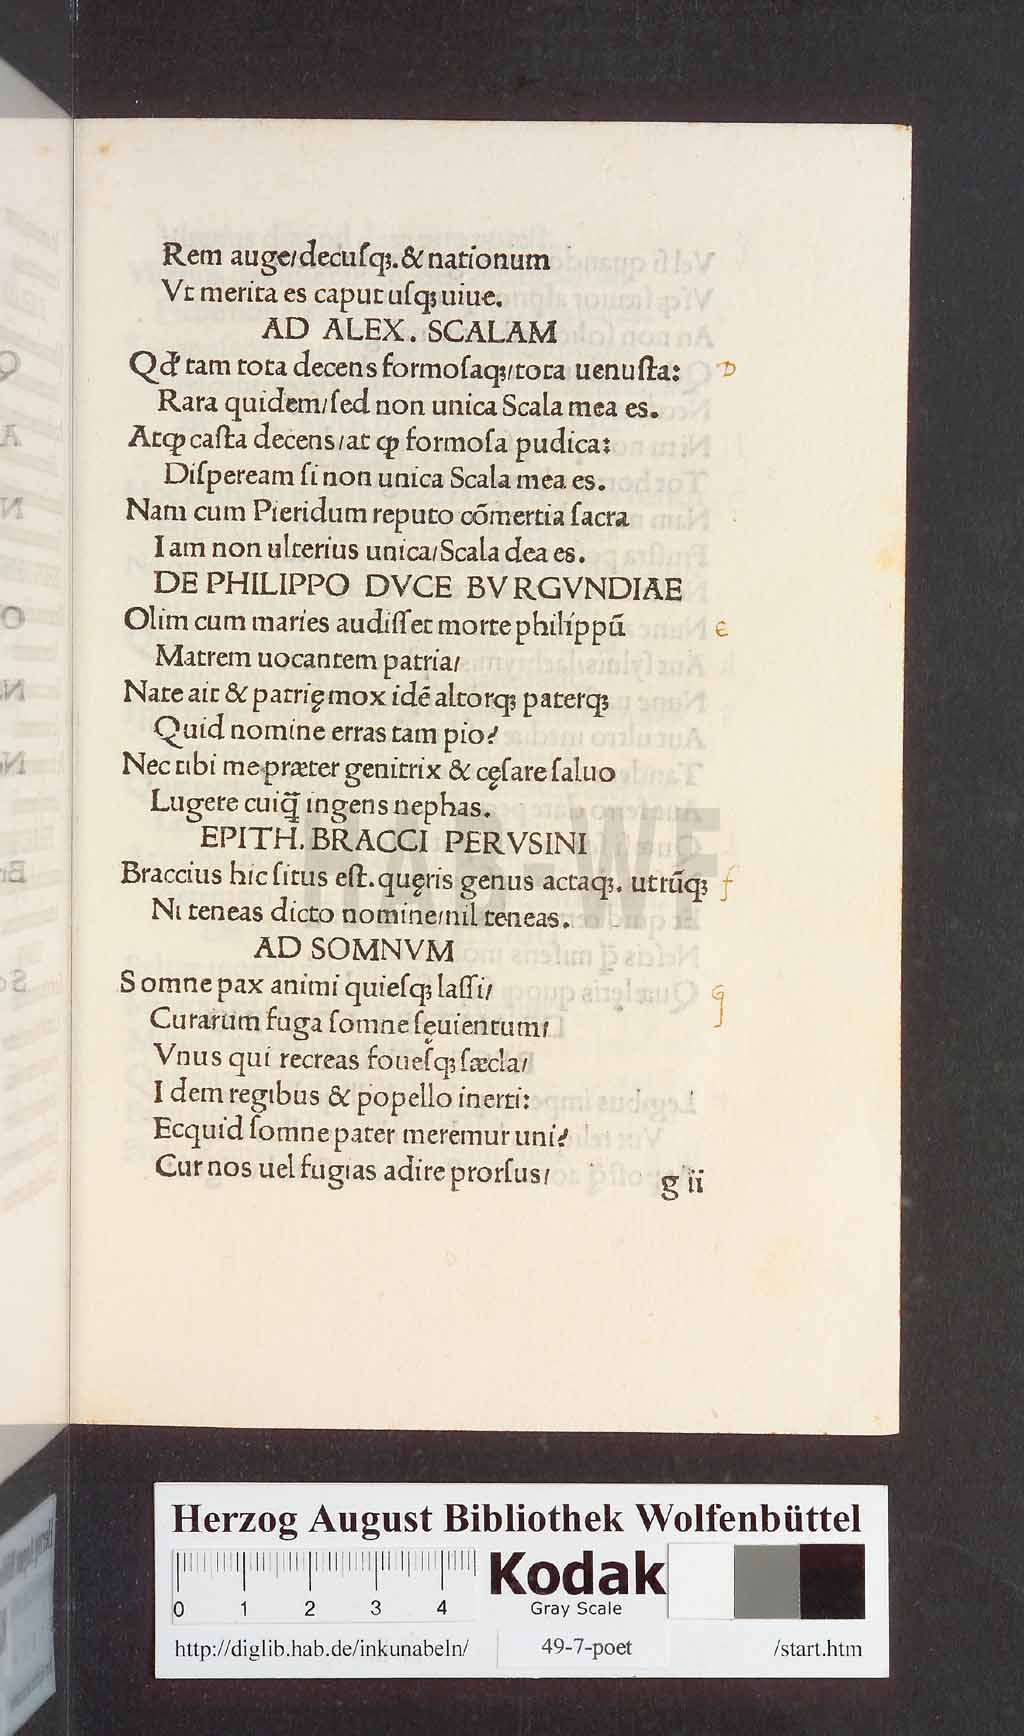 Rem auge/decuſqꝫ.& nationum
Vt merita es caput uſqꝫ uiue.
AD ALEX. SCALAM
Qđ tam tota decens formoſaqꝫ/tota uenuſta:
D
Rara quidem/ſed non unica Scala mea es.
Atꝙ caſta decens/at ꝙ formoſa pudica:
Diſpereram ſi non unica Scala mea es.
Nam cum Pieridum reputo cõmertia ſacra
Iam non ulterius unica/Scala dea es.
DE PHILIPPO DVCE BVRGVNDIAE
Olim cum maries audiſſet morte philíppũ
e
Matrem uocantem patria/
Nate ait & patrię mox idẽ altorqꝫ paterqꝫ
Quid nomine erras tam pio?
Nec tibi me præter genitrix & cęſare ſaluo
Lugere cuiq̃ ingens nephas.
EPITH. BRACCI PERVSINI
Braccius hic ſitus eſt.quęris genus actaqꝫ. utrũqꝫ
f
Ni teneas dicto nomine/nil teneas.
AD SOMNVM
Somne pax animi quieſqꝫ laſſi/
g
Curarum fuga ſomne ſęuientum/
Vnus qui recreas foueſqꝫ ſæcla/
Idem regibus & popello inerti:
Ecquid ſomne pater meremur uni?
Cur nos uel fugias adire prorſus/
g ii
HAB-WF
Herzog August Bibliothek Wolfenbüttel
0 1 2 3 4
Kodak
Gray Scale
http://diglib.hab.de/inkunabeln/ 49-7-poet /start.htm